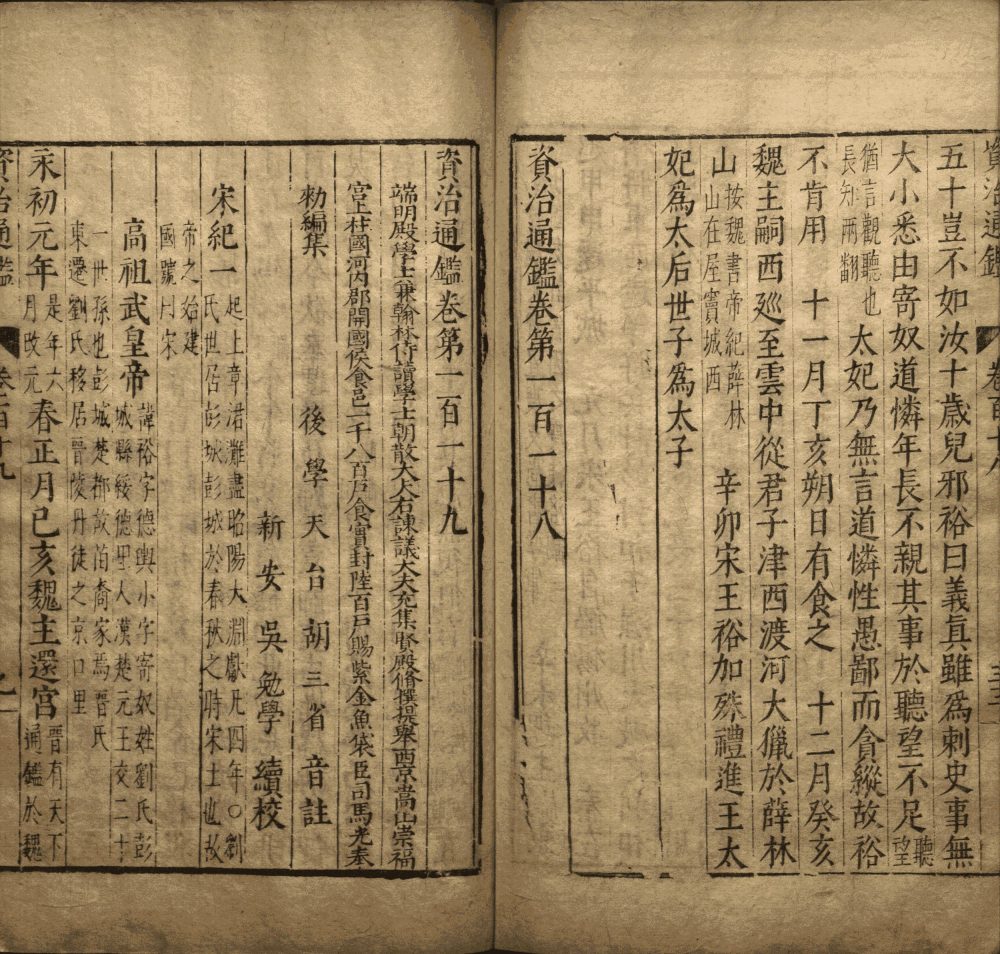 資治通鑑 卷百十八
五十豈不如汝十歲兒邪裕曰義真雖爲刺史事無
大小悉由寄奴道憐年長不親其事於聽望不足聽望
猶言觀聽也長知兩翻太妃乃無言道憐性愚鄙而貪縱故裕
不肯用 十一月丁亥朔日有食之 十二月癸亥
魏主嗣西廵至雲中從君子津西渡河大獵於薛林
山按魏書帝紀薛林山在屋竇城西 辛卯宋王裕加殊禮進王太
妃爲太后世子爲太子
資治通鑑卷第一百一十八
資治通鑑卷第一百一十九
端明殿學士兼翰林侍讀學士朝散大夫右諫議大夫充集賢殿脩撰提舉西京嵩山崇福
宮上柱國河內郡開國侯食邑一千八百戶食實封陸百戶賜紫金魚袋臣司馬光奉
勑編集 後學天台胡三省音註
新安吳勉學續校
宋紀一起上章涒灘盡昭陽大淵獻凡四年○劉氏世居彭城彭城於春秋之時宋土也故
帝之始建國號曰宋
高祖武皇帝諱裕字德輿小字寄奴姓劉氏彭城縣綏德里人漢楚元王交二十
一世孫也彭城楚都故苗裔家焉晉氏東遷劉氏移居晉陵丹徒之京口里
永初元年是年六月改元春正月己亥魏主還宮晉有天下通鑑於魏
資治通鑑